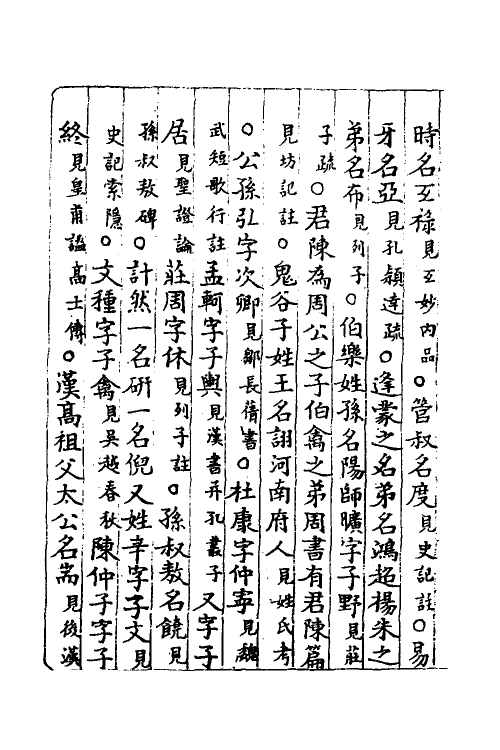 時名互祿見互妙內品○管叔名度見史記註○易
牙名亞見孔頴逹疏○逢蒙之名弟名鴻超楊朱之
弟名布見列子○伯樂姓孫名陽師曠字子野見莊
子疏○君陳為周公之子伯禽之弟周書有君陳篇
見坊記註○鬼谷子姓王名詡河南府人見姓氏考
○公孫弘字次卿見鄒長蒨書○杜康字仲寧見魏
武短歌行註孟軻字子輿見漢書并孔叢子又字子
居見聖證論莊周字休見列子註○孫叔敖名饒見
孫叔敖碑○計然一名研一名倪又姓辛字子文見
史記索隱○文種字子禽見吳越春秋陳仲子字子
終見皇甫謐高士傳○漢髙祖父太公名耑見後漢